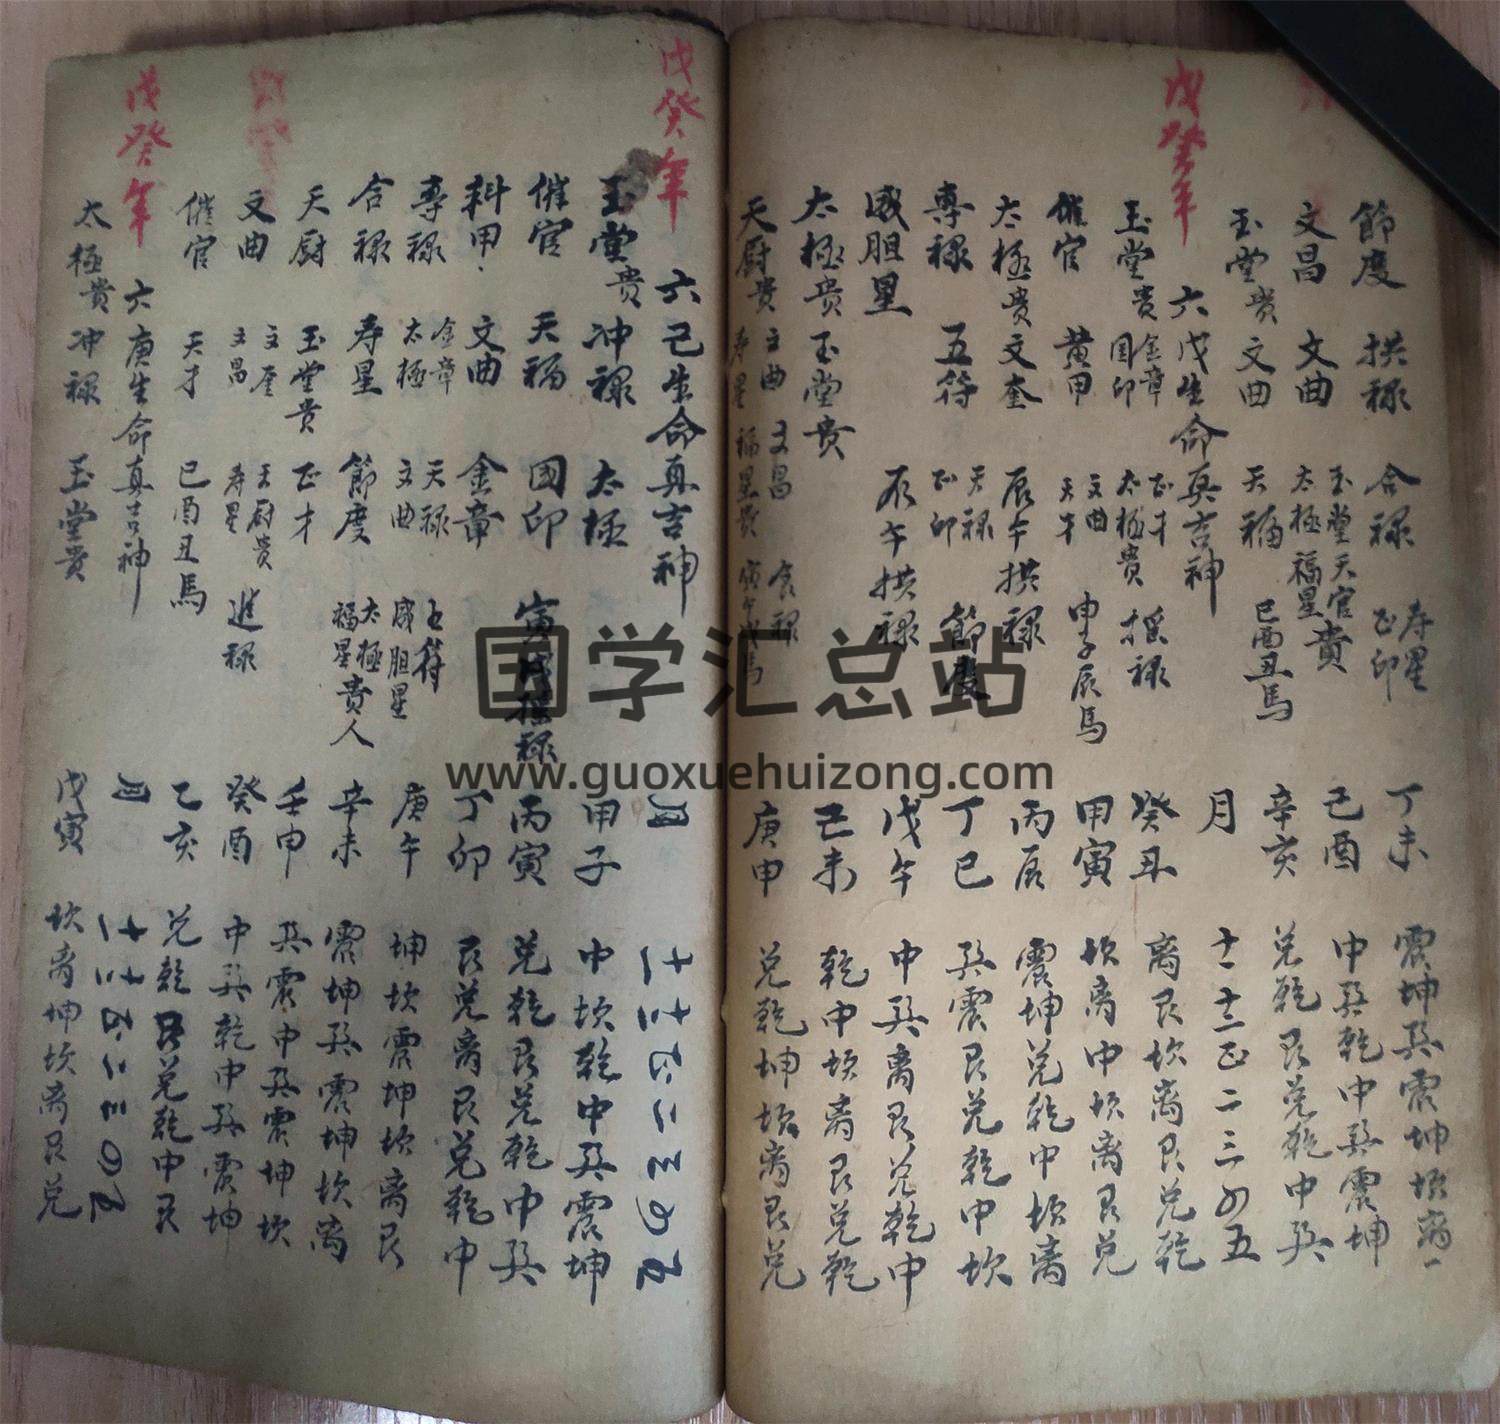 節度 拱禄 合禄 寿星 正印 丁未 震坤巽震坤坎离
文昌 文曲 玉堂天官 太極福星貴 己酉 中巽乾中巽震坤
玉堂貴 文曲 天福 巳酉丑馬 辛亥 兑乾艮兑乾中巽
戊癸年 六戊生命真吉神 月 十一十二正二三四五
玉堂貴 金章 国印 正才 太極貴 摇禄 癸丑 离艮坎离艮兑乾
催官 黄甲 文曲 天才 申子辰馬 甲寅 坎离中坎离艮兑
太極貴 文奎 辰午拱禄 丙辰 震坤兑乾中坎离
專禄 五符 天禄 正印 節度 丁巳 巽震艮兑乾中坎
威胆星 辰午拱禄 戊午 中巽离艮兑乾中
太極貴 玉堂貴 己未 乾中坎离艮兑乾
天厨貴 文曲 寿星 文昌 福星貴 合禄 寅午戌馬 庚申 兑乾坤坎离艮兑
戊癸年 六己生命真吉神 月 十一十二正二三四五
玉堂貴 冲禄 太極 甲子 中坎乾中巽震坤
催官 天福 國印 寅戌摇禄 丙寅 兑乾艮兑乾中巽
科甲 文曲 金章 丁卯 艮兑离艮兑乾中
專禄 金章 太極 天禄 文曲 五符 威胆星 庚午 坤坎震坤坎离艮
合禄 寿星 節度 太極 福星貴人 辛未 震坤巽震坤坎离
天厨 玉堂貴 正才 壬申 巽震中巽震坤坎
文曲 文奎 文昌 天厨貴 寿星 進禄 癸酉 中巽乾中巽震坤
催官 天才 巳酉丑馬 乙亥 兑乾艮兑乾中巽
戊癸年 六庚生命真吉神 月 十一十二正二三四五
太極貴 冲禄 玉堂貴 戊寅 坎离坤坎离艮兑
国学汇总站
www.guoxuehuizong.com